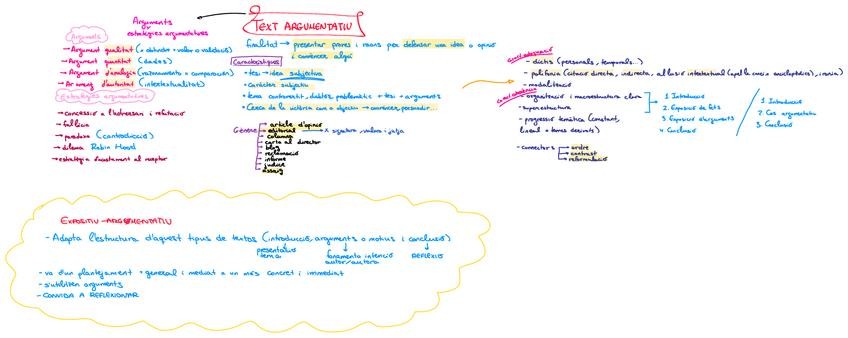 TEXT ARGUMENTATIU
finalitat → presentar proves i raons per defensar una idea o opinió
i convèncer algú
Característiques
• tesi → idea subjectiva
• caràcter subjectiu
• tema controvertit, dubtós, problemàtic + tesi + arguments
• Cerca de la victòria com a objectiu → convèncer, persuadir...
Gènere
article d'opinió
editorial → x signatura, valora i jutja
columna
carta al director
blog
reclamació
informe
judici
assaig
Arguments
estratègies argumentatives
Arguments
→ Argument quantitat (x abundor + valor o validació)
→ Argument qualitat (dades)
→ Argument d'analogia (raonaments + comparació)
→ Argument d'autoritat (intertextualitat)
Estratègies argumentatives
→ concessió a l'adversari i refutació
→ fal·làcia
→ paradoxa (contradicció)
→ dilema Robin Hood
→ estratègia d'acostament al receptor
- díctics (personals, temporals...)
- polifonia (citació directa, indirecta, al·lusió intertextual (apel·lacions enciclopèdics), ironia)
- modalització
- organització i macroestructura clara
1 Introducció
2. Exposició de fets
3 Exposició d'arguments
4 Conclusió
1. Introducció
2. Cos argumentatiu
3. Conclusió
- superestructura
- progressió temàtica (constant,
lineal o temes derivats)
- connectors
ordre
contrast
reformulació
EXPOSITIU-ARGUMENTATIU
- Adopta l'estructura d'aquest tipus de textos (introducció, arguments o motius i conclusió)
presentació
tema
fonamenta intenció
autor/autora
REFLEXIÓ
- va d'un plantejament + general i mediat a un més concret i immediat
- s'utilitzen arguments
- CONVIDA A REFLEXIONAR